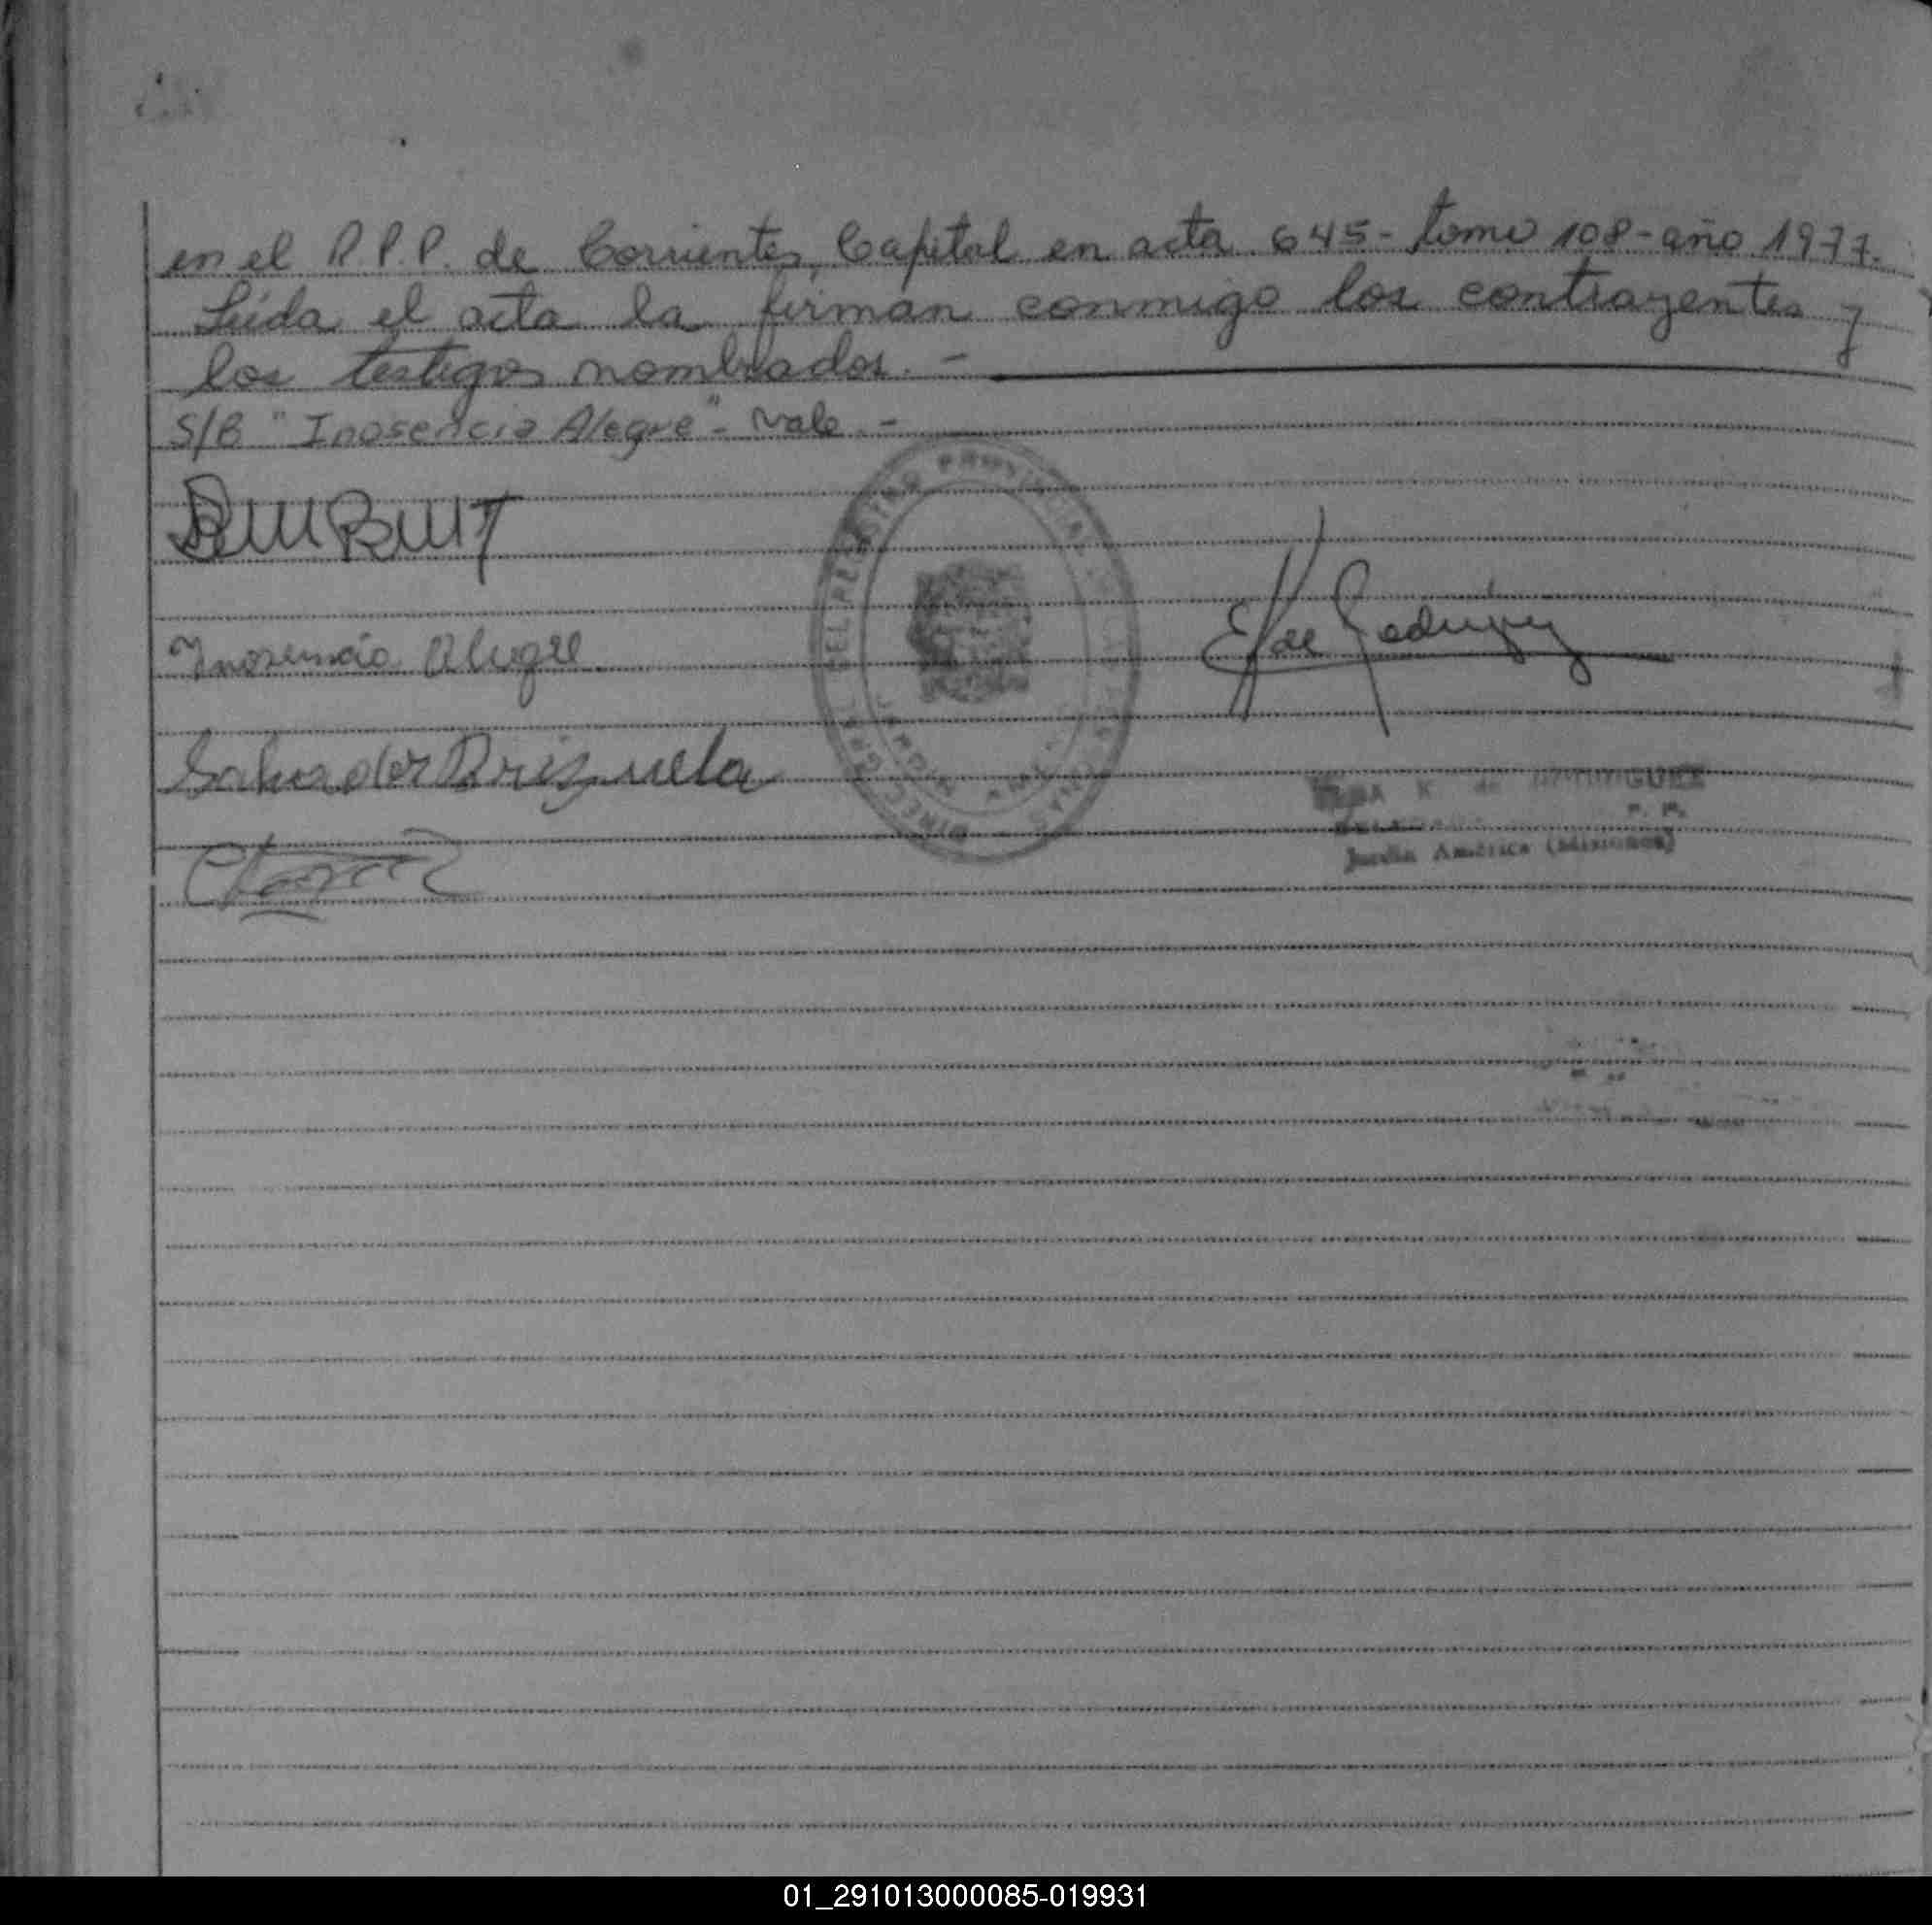 en el R.P.P. de Corrientes, Capital en acta 645- tomo 108- año 1977.
Leída el acta la firman conmigo los contrayentes y
los testigos nombrados. -
S/B "Inosencia Alegre" - Vale -
Inosencia Alegre
Salvador Brizuela
E. de Rodriguez
de RODRIGUEZ
Jardín América (Misiones)
01_291013000085-019931